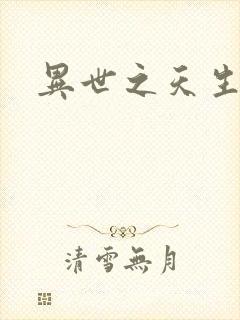 異世之天生
清雪無月